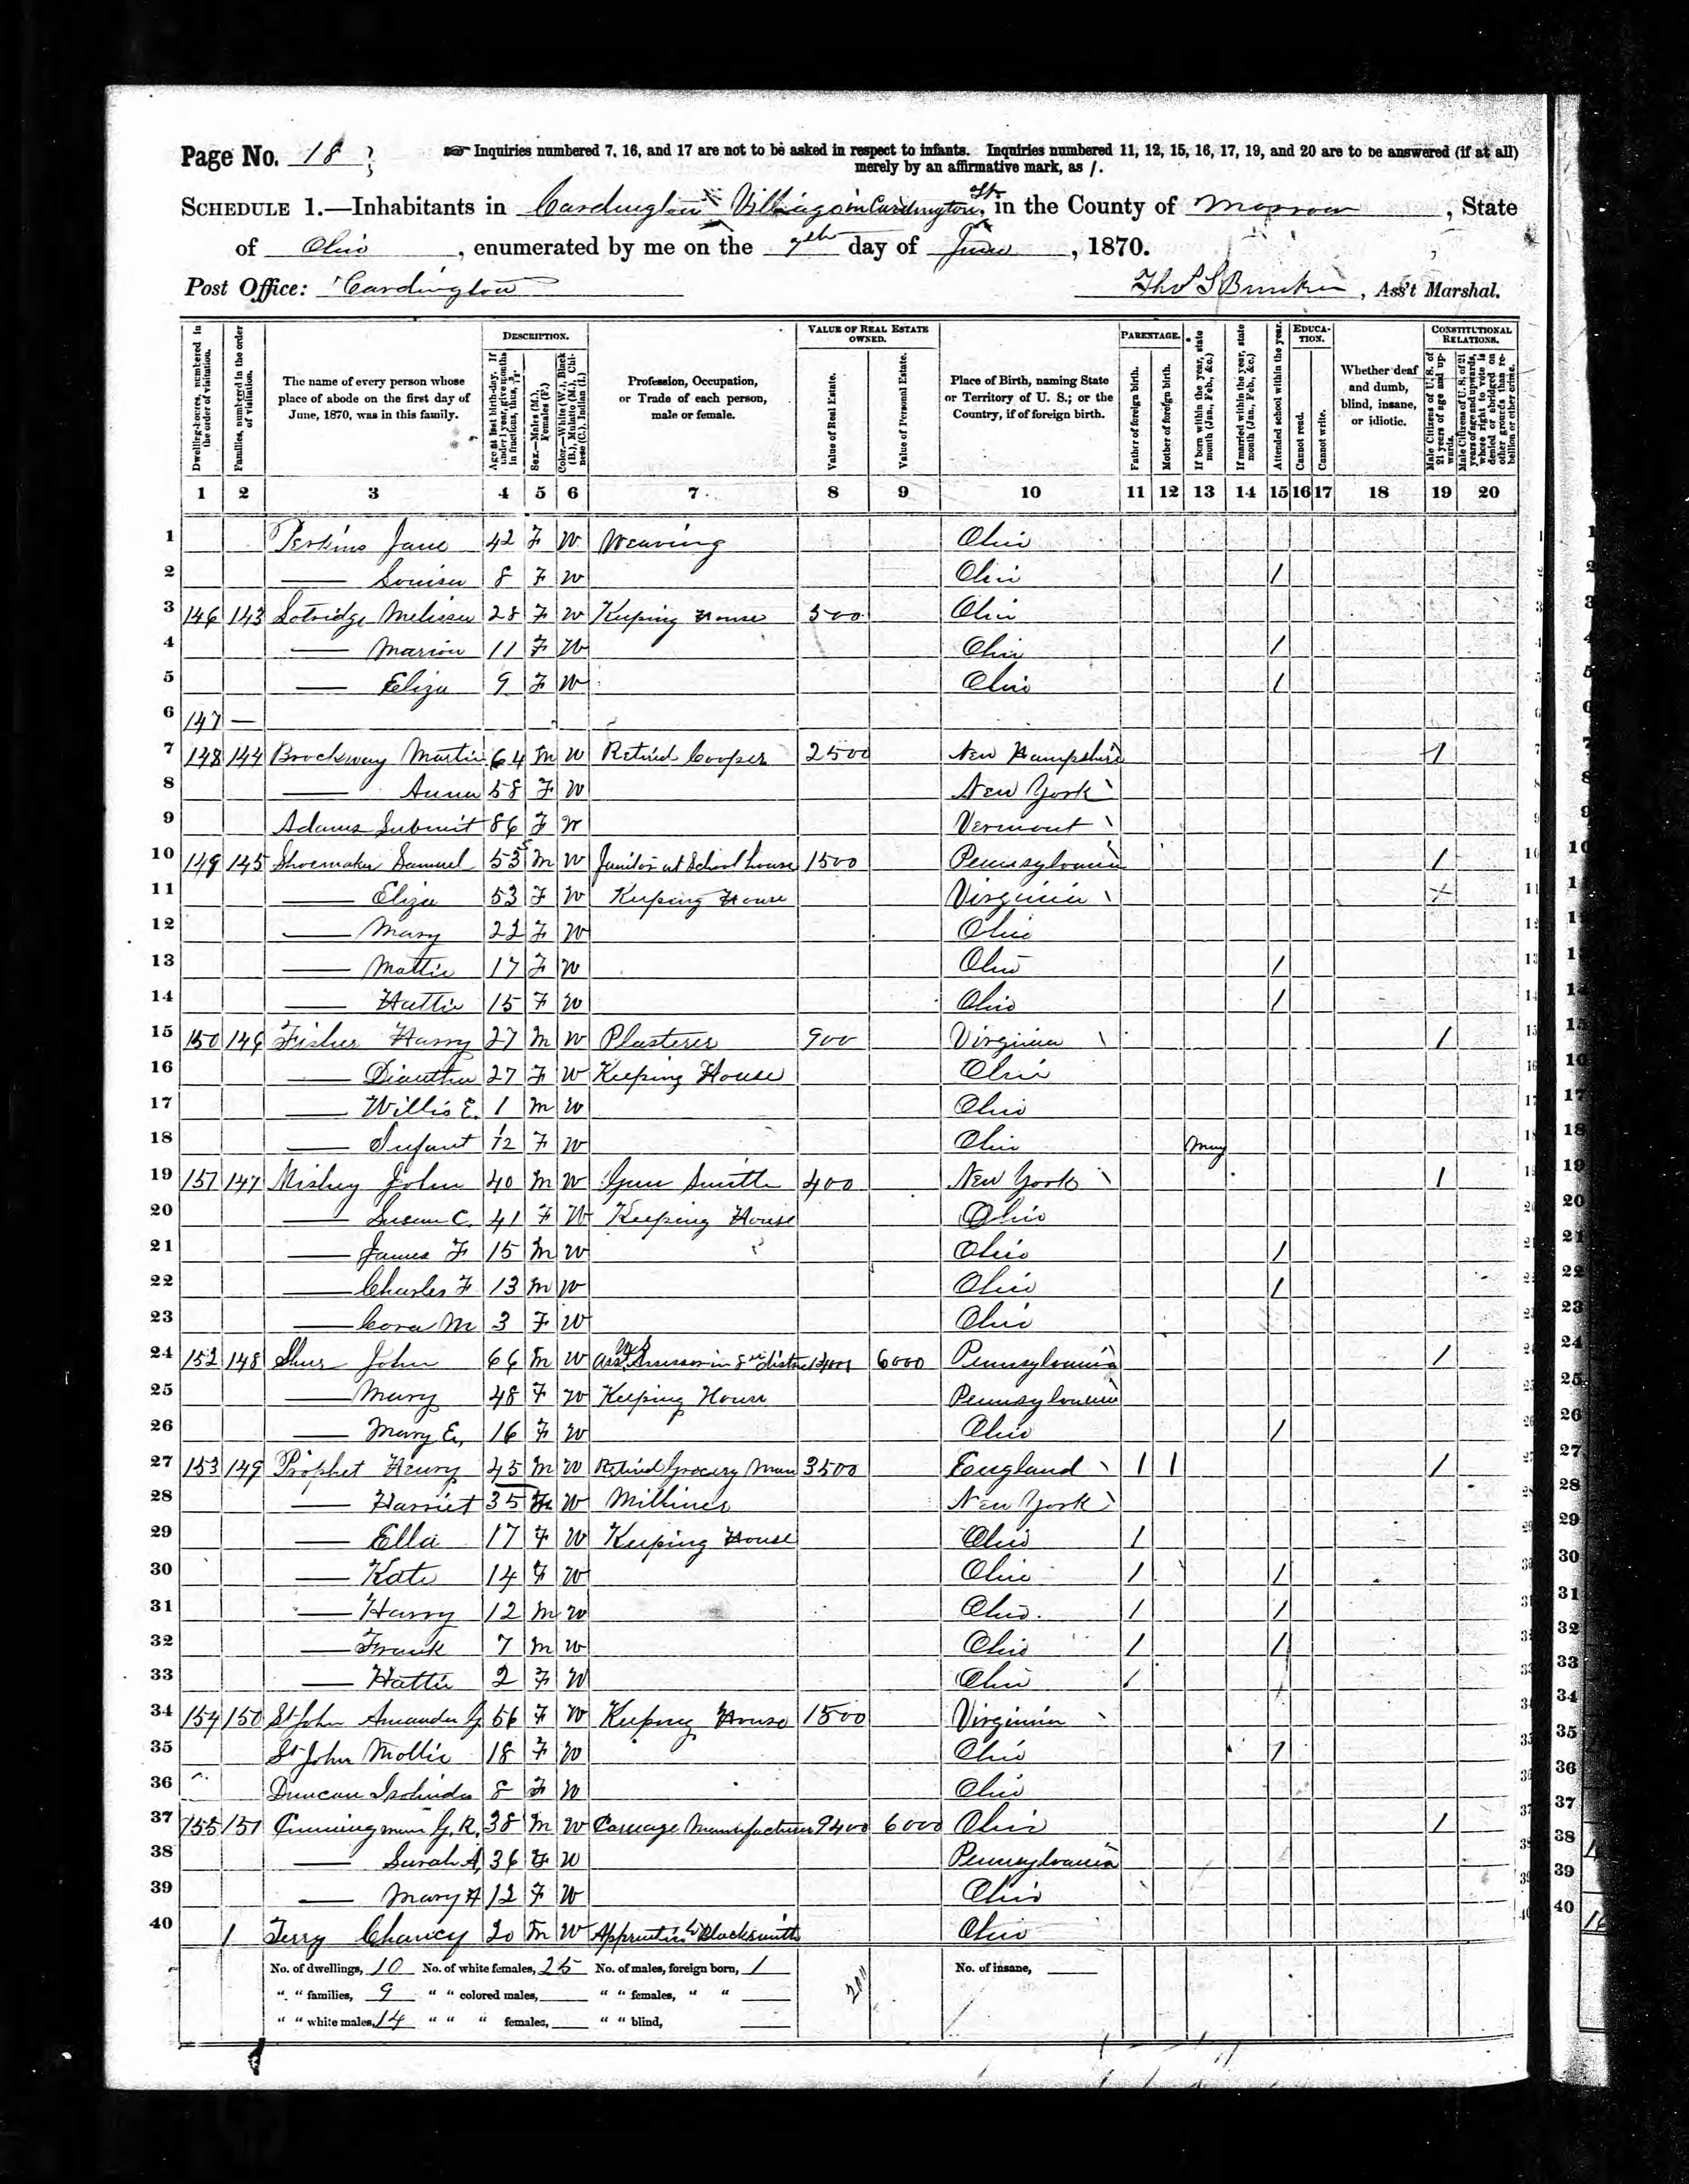 Page No. 18
Inquiries numbered 7, 16, and 17 are not to be asked in respect to infants. Inquiries numbered 11, 12, 15, 16, 17, 19, and 20 are to be answered (if at all)
merely by an affirmative mark, as /.
SCHEDULE 1.—Inhabitants in Cardington Village in Cardington, in the County of Morrow, State
of Ohio, enumerated by me on the 7th day of June, 1870.
Post Office: Cardington Thos S Bunker, Ass't Marshal.
Dwelling-houses, numbered in the order of visitation.
Families, numbered in the order of visitation.
The name of every person whose place of abode on the first day of June, 1870, was in this family.
DESCRIPTION.
Age at last birth-day. If under 1 year, give months in fractions, thus, 3/12
Sex.—Males (M.), Females (F.)
Color.—White (W.), Black (B.), Mulatto (M.), Chinese (C.), Indian (I.)
Profession, Occupation, or Trade of each person, male or female.
VALUE OF REAL ESTATE OWNED.
Value of Real Estate.
Value of Personal Estate.
Place of Birth, naming State or Territory of U. S.; or the Country, if of foreign birth.
PARENTAGE.
Father of foreign birth.
Mother of foreign birth.
If born within the year, state month (Jan., Feb., &c.)
If married within the year, state month (Jan., Feb., &c.)
Attended school within the year.
EDUCATION.
Cannot read.
Cannot write.
Whether deaf and dumb, blind, insane, or idiotic.
CONSTITUTIONAL RELATIONS.
Male Citizens of U. S. of 21 years of age and upwards.
Male Citizens of U. S. of 21 years of age and upwards, where right to vote is denied or abridged on other grounds than rebellion or other crime.
1 2 3 4 5 6 7 8 9 10 11 12 13 14 15 16 17 18 19 20
1 Perkins Jane 42 F W Weaving Ohio
2 — Louisa 8 F W Ohio /
3 146 143 Lotridge Melissa 28 F W Keeping House 500 Ohio
4 — Marion 11 F W Ohio /
5 — Eliza 9 F W Ohio /
6 147 —
7 148 144 Brockway Martin 64 M W Retired Cooper 2500 New Hampshire 1
8 — Anna 58 F W New York
9 Adams Submit 86 F W Vermont
10 149 145 Shoemaker Samuel 55 M W Janitor at School house 1500 Pennsylvania /
11 — Eliza 53 F W Keeping House Virginia
12 — Mary 22 F W Ohio
13 — Mattie 17 F W Ohio /
14 — Hattie 15 F W Ohio /
15 150 146 Fisher Harry 27 M W Plasterer 900 Virginia /
16 — Diantha 27 F W Keeping House Ohio
17 — Willis E. 1 M W Ohio
18 — Infant 1/12 F W Ohio May
19 151 147 Mishey John 40 M W Gun Smith 400 New York /
20 — Susan C. 41 F W Keeping House Ohio
21 — James F 15 M W Ohio /
22 — Charles F 13 M W Ohio /
23 — Cora M 3 F W Ohio
24 152 148 Shur John 66 M W Asst U S Assessor in 8th district 6000 Pennsylvania /
25 — Mary 48 F W Keeping House Pennsylvania
26 — Mary E. 16 F W Ohio /
27 153 149 Prophet Henry 45 M W Retired Grocery Man 3500 England 1 1 /
28 — Harriet 35 F W Milliner New York
29 — Ella 17 F W Keeping House Ohio /
30 — Kate 14 F W Ohio / /
31 — Harry 12 M W Ohio / /
32 — Frank 7 M W Ohio / /
33 — Hattie 2 F W Ohio /
34 154 150 St John Amanda G 56 F W Keeping House 1500 Virginia
35 St John Mollie 18 F W Ohio 1
36 Duncan 8 F W Ohio
37 155 151 Cunningman G. R. 38 M W Carriage Manufacturer 9400 6000 Ohio /
38 — Sarah A. 36 F W Pennsylvania
39 — Mary A 12 F W Ohio
40 1 Terry Chancy 20 M W Apprentice Blacksmith Ohio
No. of dwellings, 10 No. of white females, 25 No. of males, foreign born, 1 No. of insane,
" " families, 9 " " colored males, " " females, " "
" " white males, 14 " " " females, " " blind,